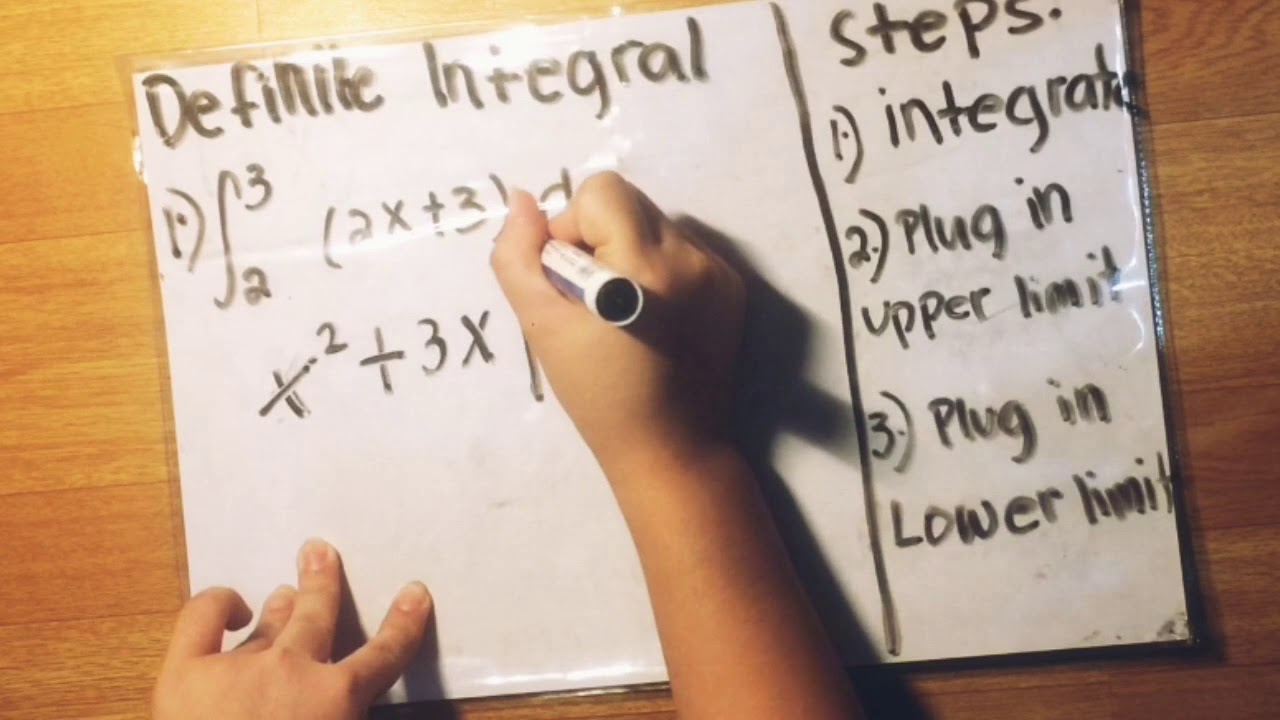 Definite Integral
1.) ∫₂³ (2x+3) d
x² + 3x |
Steps.
1.) integrate
2.) Plug in
upper limit
3.) Plug in
Lower limit